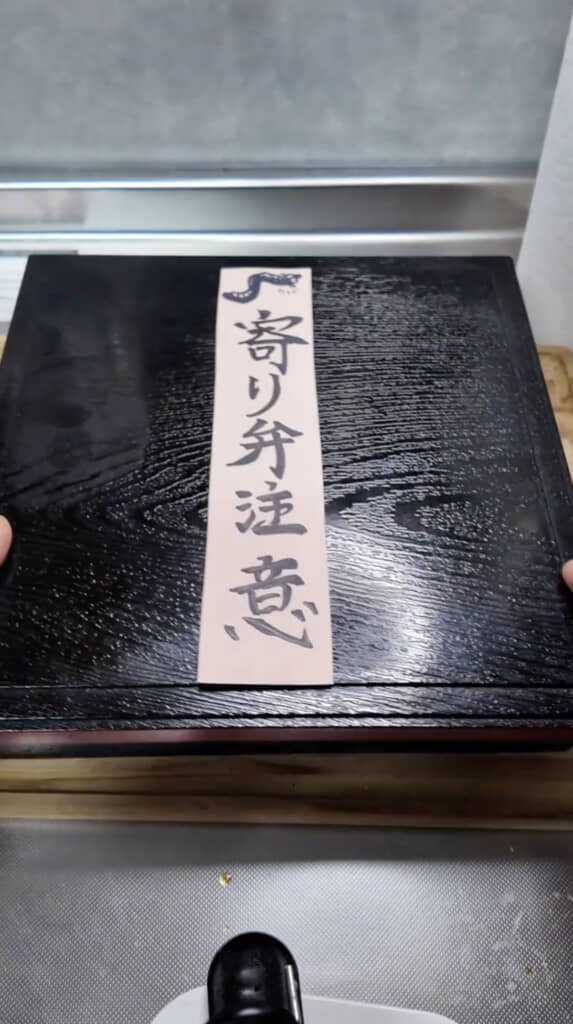 寄り弁注意